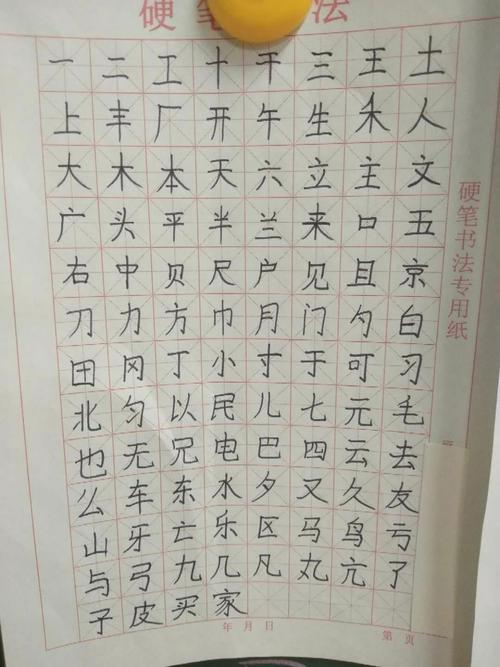 硬笔 法
一二工十干三王土
上丰厂开午生禾人
大木本天六立主文
广头平半兰来口五
右中贝尺户见且京
刀力方巾月门勺白
田冈丁小寸于可习
北匀以民儿七元毛
也无兄电巴四云去
么车东水夕又久友
山牙亡乐区马鸟亏
与弓九几凡丸亢了
子皮买家
硬笔书法专用纸
年 月 日
第 页